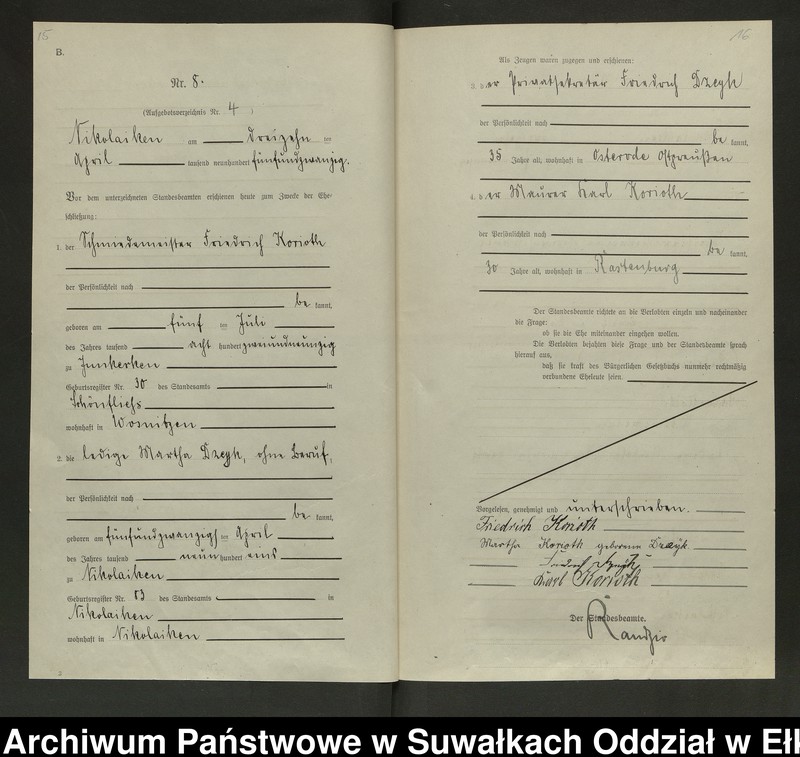 15
B.
Nr. 8.
(Aufgebotsverzeichnis Nr. 4)
Nikolaiken am dreizehn ten
April tausend neunhundert fünfundzwanzig.
Vor dem unterzeichneten Standesbeamten erschienen heute zum Zwecke der Ehe-
schließung:
1. der Schmiedemeister Friedrich Korioth
der Persönlichkeit nach
be kannt,
geboren am fünf ten Juli
des Jahres tausend acht hundert zweiundneunzig
zu Junkerken
Geburtsregister Nr. 30 des Standesamts in
Schönfließ
wohnhaft in Wosnitzen
2. die ledige Martha Dzeyk, ohne Beruf,
der Persönlichkeit nach
be kannt,
geboren am fünfundzwanzigs ten April
des Jahres tausend neun hundert eins
zu Nikolaiken
Geburtsregister Nr. 53 des Standesamts in
Nikolaiken
wohnhaft in Nikolaiken
2
16
Als Zeugen waren zugegen und erschienen:
3. der Privatsekretär Friedrich Dzeyk
der Persönlichkeit nach
be kannt,
35 Jahre alt, wohnhaft in Osterode Ostpreußen
4. der Maurer Karl Korioth
der Persönlichkeit nach
be kannt,
30 Jahre alt, wohnhaft in Rastenburg
Der Standesbeamte richtete an die Verlobten einzeln und nacheinander
die Frage:
ob sie die Ehe miteinander eingehen wollen.
Die Verlobten bejahten diese Frage und der Standesbeamte sprach
hierauf aus,
daß sie kraft des Bürgerlichen Gesetzbuchs nunmehr rechtmäßig
verbundene Eheleute seien.
Vorgelesen, genehmigt und unterschrieben.
Friedrich Korioth
Martha Korioth geborene Dzeyk
Friedrich Dzeyk
Karl Korioth
Der Standesbeamte.
Archiwum Państwowe w Suwałkach Oddział w Ełk